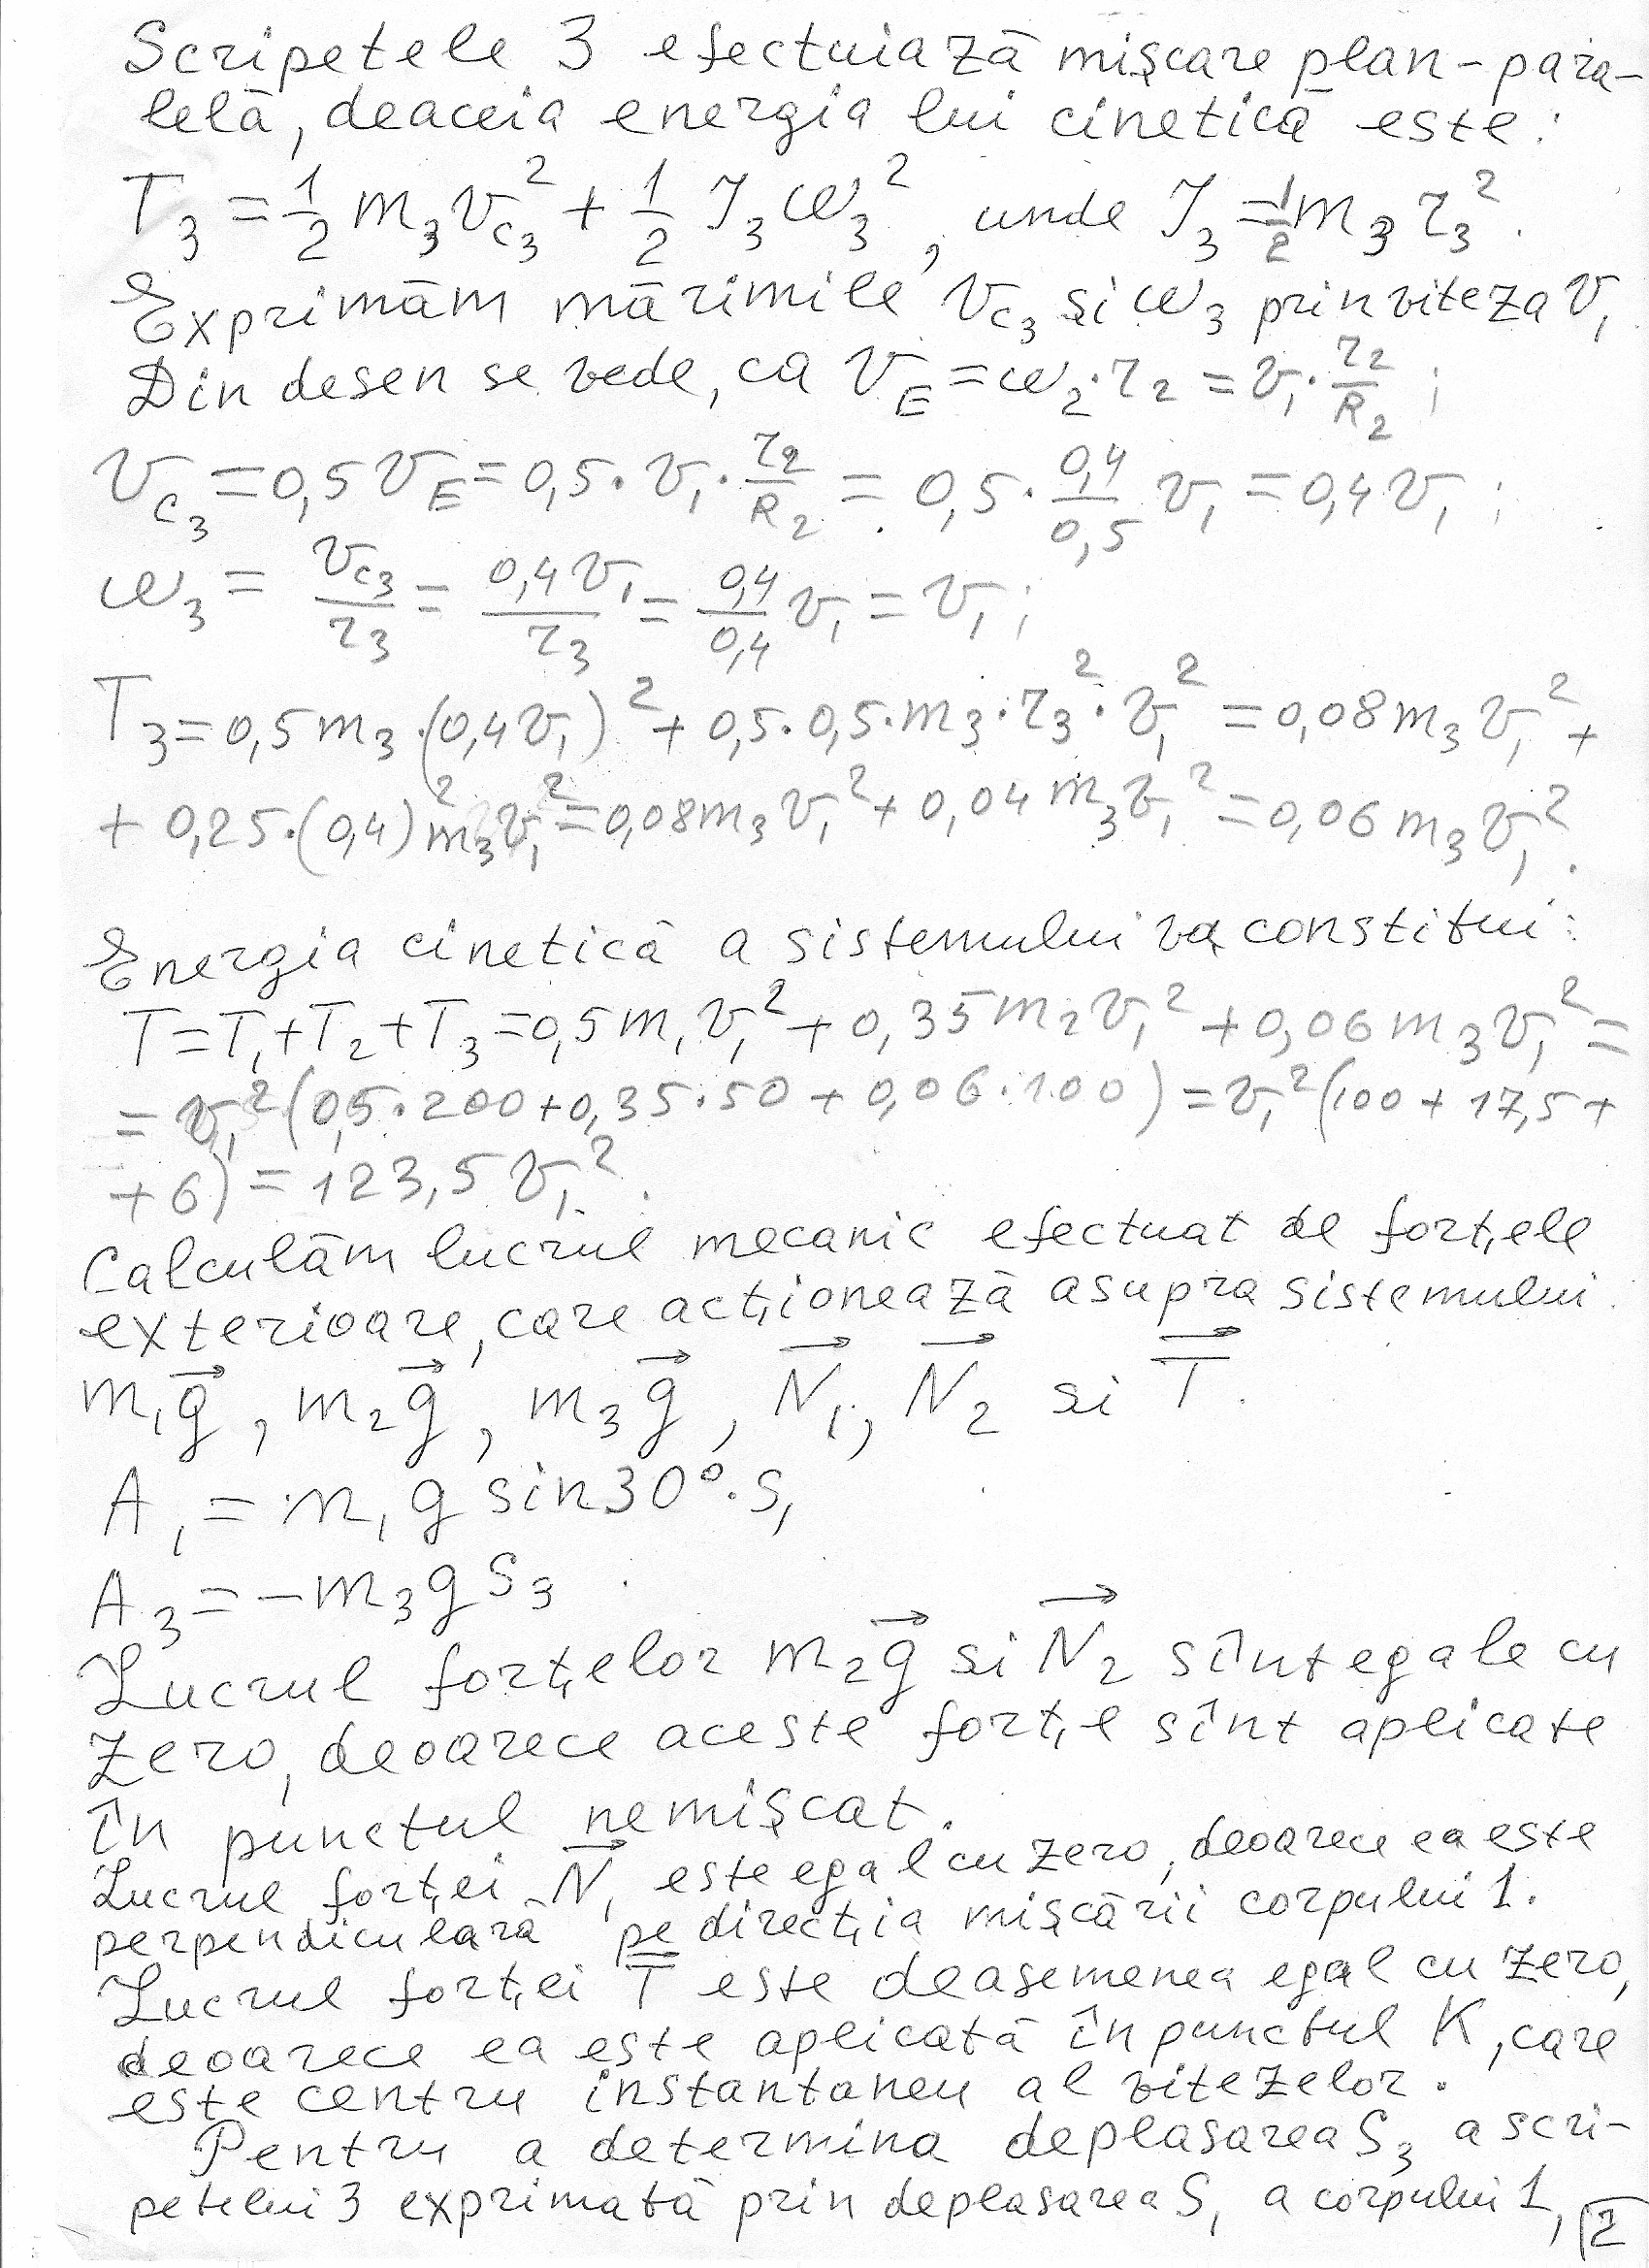 Scripetele 3 efectuiază mişcare plan-para-
lelă, deaceia energia lui cinetică este:
T₃ = 1/2 m₃ v_c₃² + 1/2 J₃ ω₃², unde J₃ = 1/2 m₃ r₃².
Exprimăm mărimile v_c₃ şi ω₃ prin viteza v₁
Din desen se vede, ca v_E = ω₂·r₂ = v₁·r₂/R₂;
v_c₃ = 0,5 v_E = 0,5·v₁·r₂/R₂ = 0,5·0,4/0,5 v₁ = 0,4 v₁;
ω₃ = v_c₃/r₃ = 0,4v₁/r₃ = 0,4/0,4 v₁ = v₁;
T₃ = 0,5 m₃·(0,4v₁)² + 0,5·0,5·m₃·r₃²·v₁² = 0,08 m₃ v₁² +
+ 0,25·(0,4)² m₃v₁² = 0,08 m₃ v₁² + 0,04 m₃ v₁² = 0,06 m₃ v₁².
Energia cinetică a sistemului va constitui:
T = T₁ + T₂ + T₃ = 0,5 m₁ v₁² + 0,35 m₂ v₁² + 0,06 m₃ v₁² =
= v₁² (0,5·200 + 0,35·50 + 0,06·100) = v₁² (100 + 17,5 +
+ 6) = 123,5 v₁².
Calculăm lucrul mecanic efectuat de forţele
exterioare, care acţionează asupra sistemului.
m₁g⃗, m₂g⃗, m₃g⃗, N⃗₁, N⃗₂ si T⃗.
A₁ = m₁ g sin30°·S₁
A₃ = -m₃ g S₃
Lucrul forţelor m₂g⃗ si N⃗₂ sînt egale cu
zero, deoarece aceste forţe sînt aplicate
în punctul nemişcat.
Lucrul forţei N⃗₁ este egal cu zero, deoarece ea este
perpendiculară pe direcţia mişcării corpului 1.
Lucrul forţei T⃗ este deasemenea egal cu zero,
deoarece ea este aplicată în punctul K, care
este centru instantaneu al vitezelor.
Pentru a determina deplasarea S₃ a scri-
petelui 3 exprimată prin deplasarea S₁ a corpului 1,
2